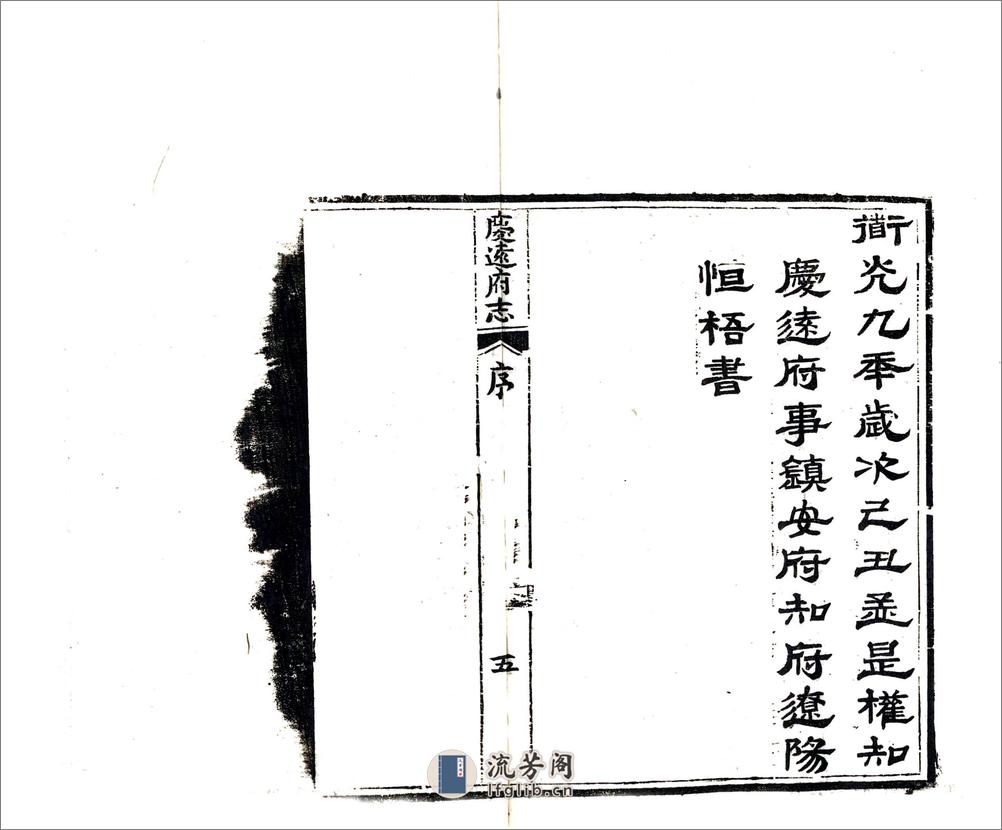 衟光九秊歲次己丑孟昰權知
慶遠府事鎮安府知府遼陽
恒梧書
慶遠府志
序
五
流芳阁
lfglib.cn